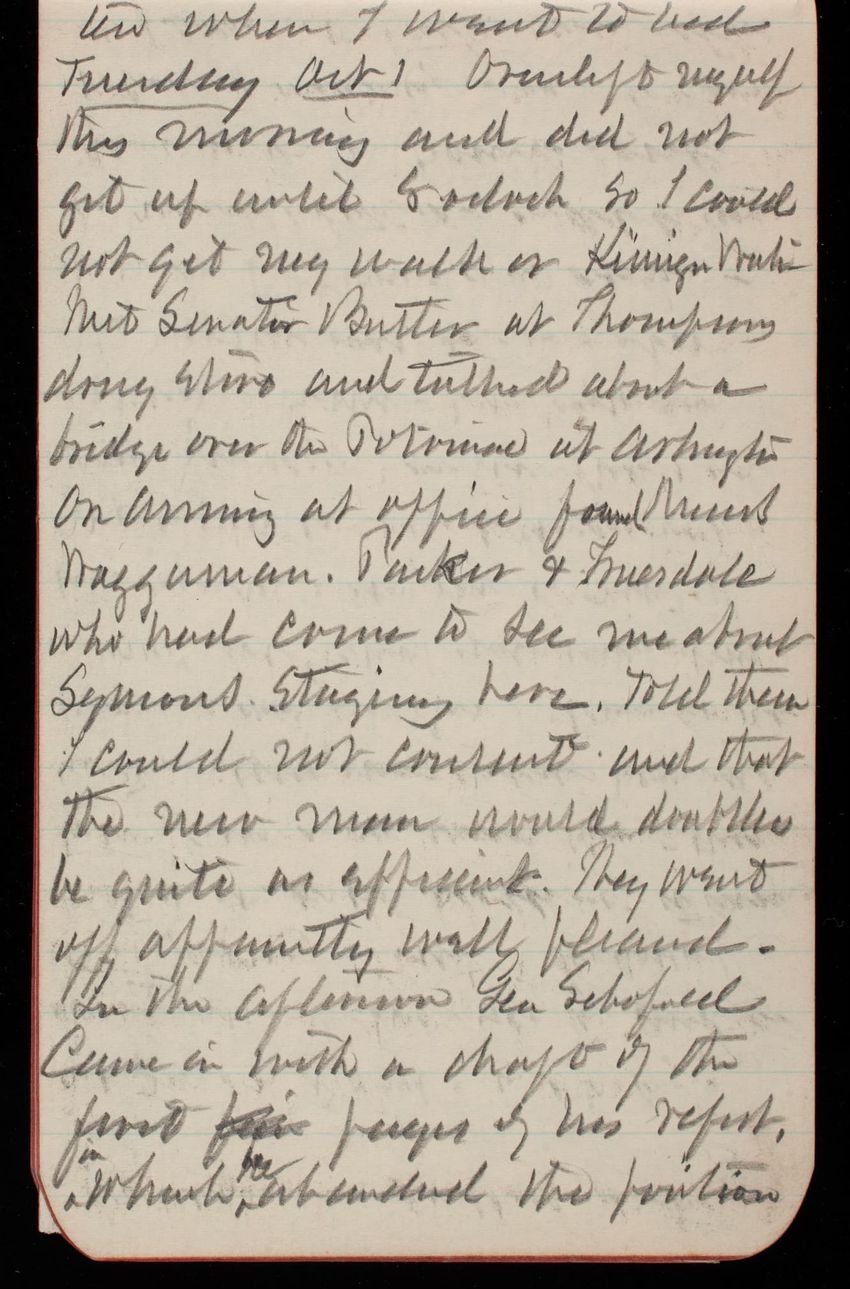 ten when I went to bed
Tuesday Oct 1 Overslept myself
this morning and did not
get up until 8 oclock so I could
not get my walk or
Met Senator Butler at Thompsons
drug store and talked about a
bridge over the Potomac at Arlington
On arriving at office found Messrs
Waggaman. Parker & Truesdale
who had come to see me about
Symons. Staying here. Told them
I could not consent and that
the new man would doubtless
be quite as efficient. They went
off apparently well pleased -
In the afternoon Gen Schofield
Came in with a draft of the
first pages of his report,
in which he abandoned the position